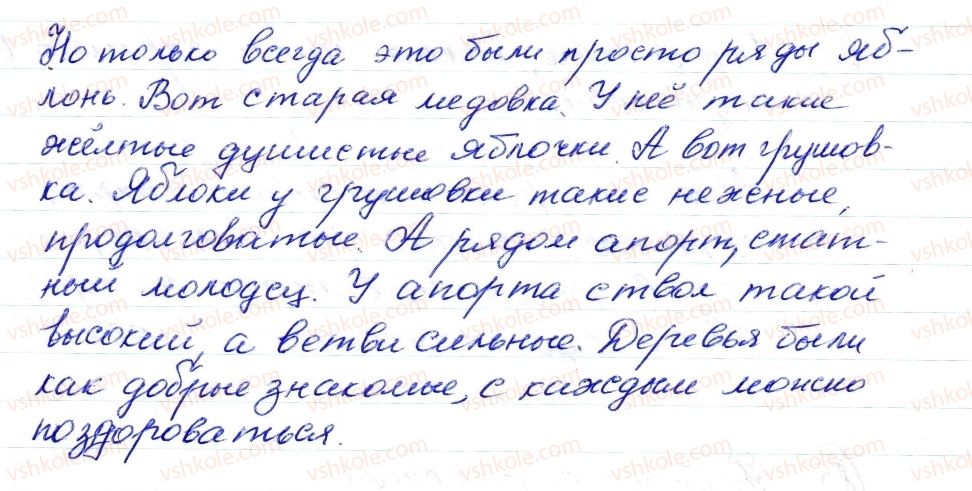 Но только всегда это были просто ряды яб-
лонь. Вот старая медовка. У неё такие
жёлтые душистые яблочки. А вот грушов-
ка. Яблоки у грушовки такие нежные,
продолговатые. А рядом апорт, стат-
ный молодец. У апорта ствол такой
высокий, а ветви сильные. Деревья были
как добрые знакомые, с каждым можно
поздороваться.